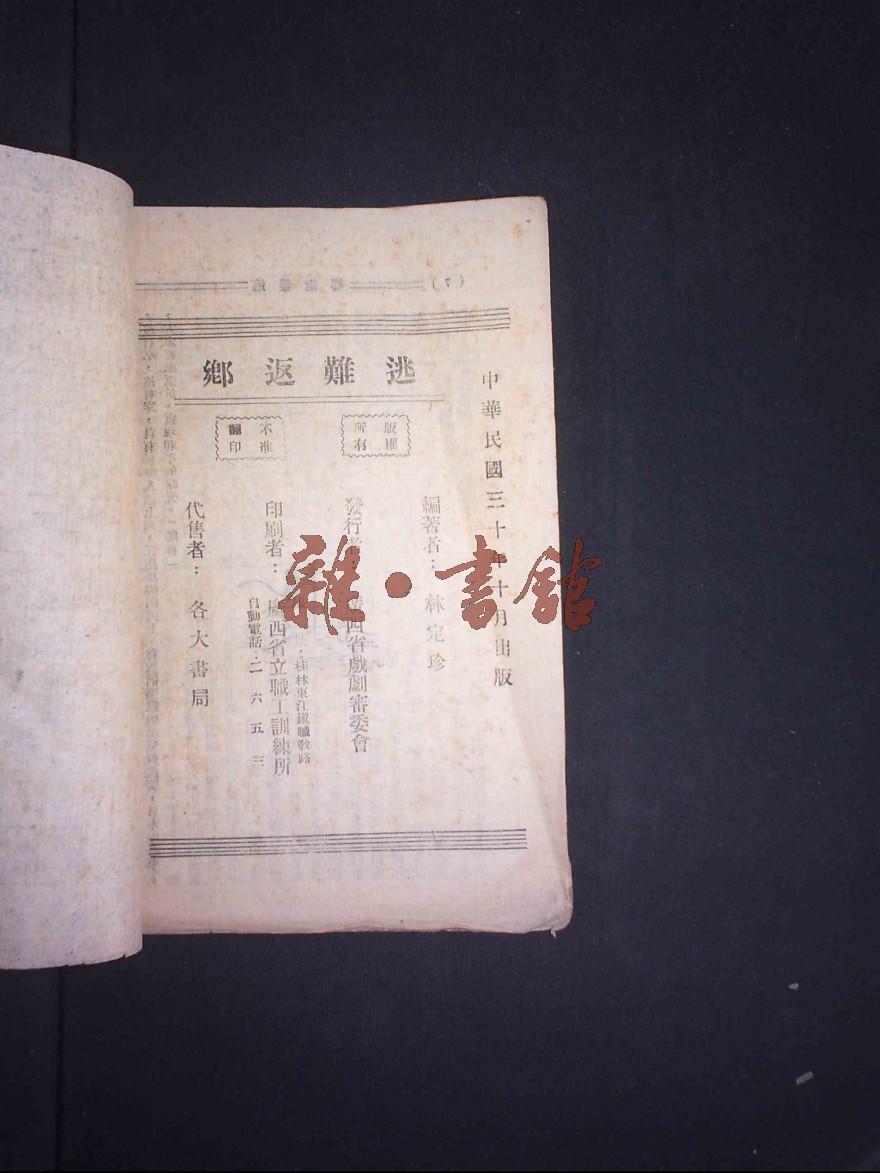 中華民國三十年十月出版
逃難返鄉
版權所有
不准翻印
編著者：林定珍
發行者 西省戲劇審委會
印刷者：廣西省立職工訓練所
桂林東江鎮職教路
自動電話：二六五三
代售者：各大書局
雜·書館